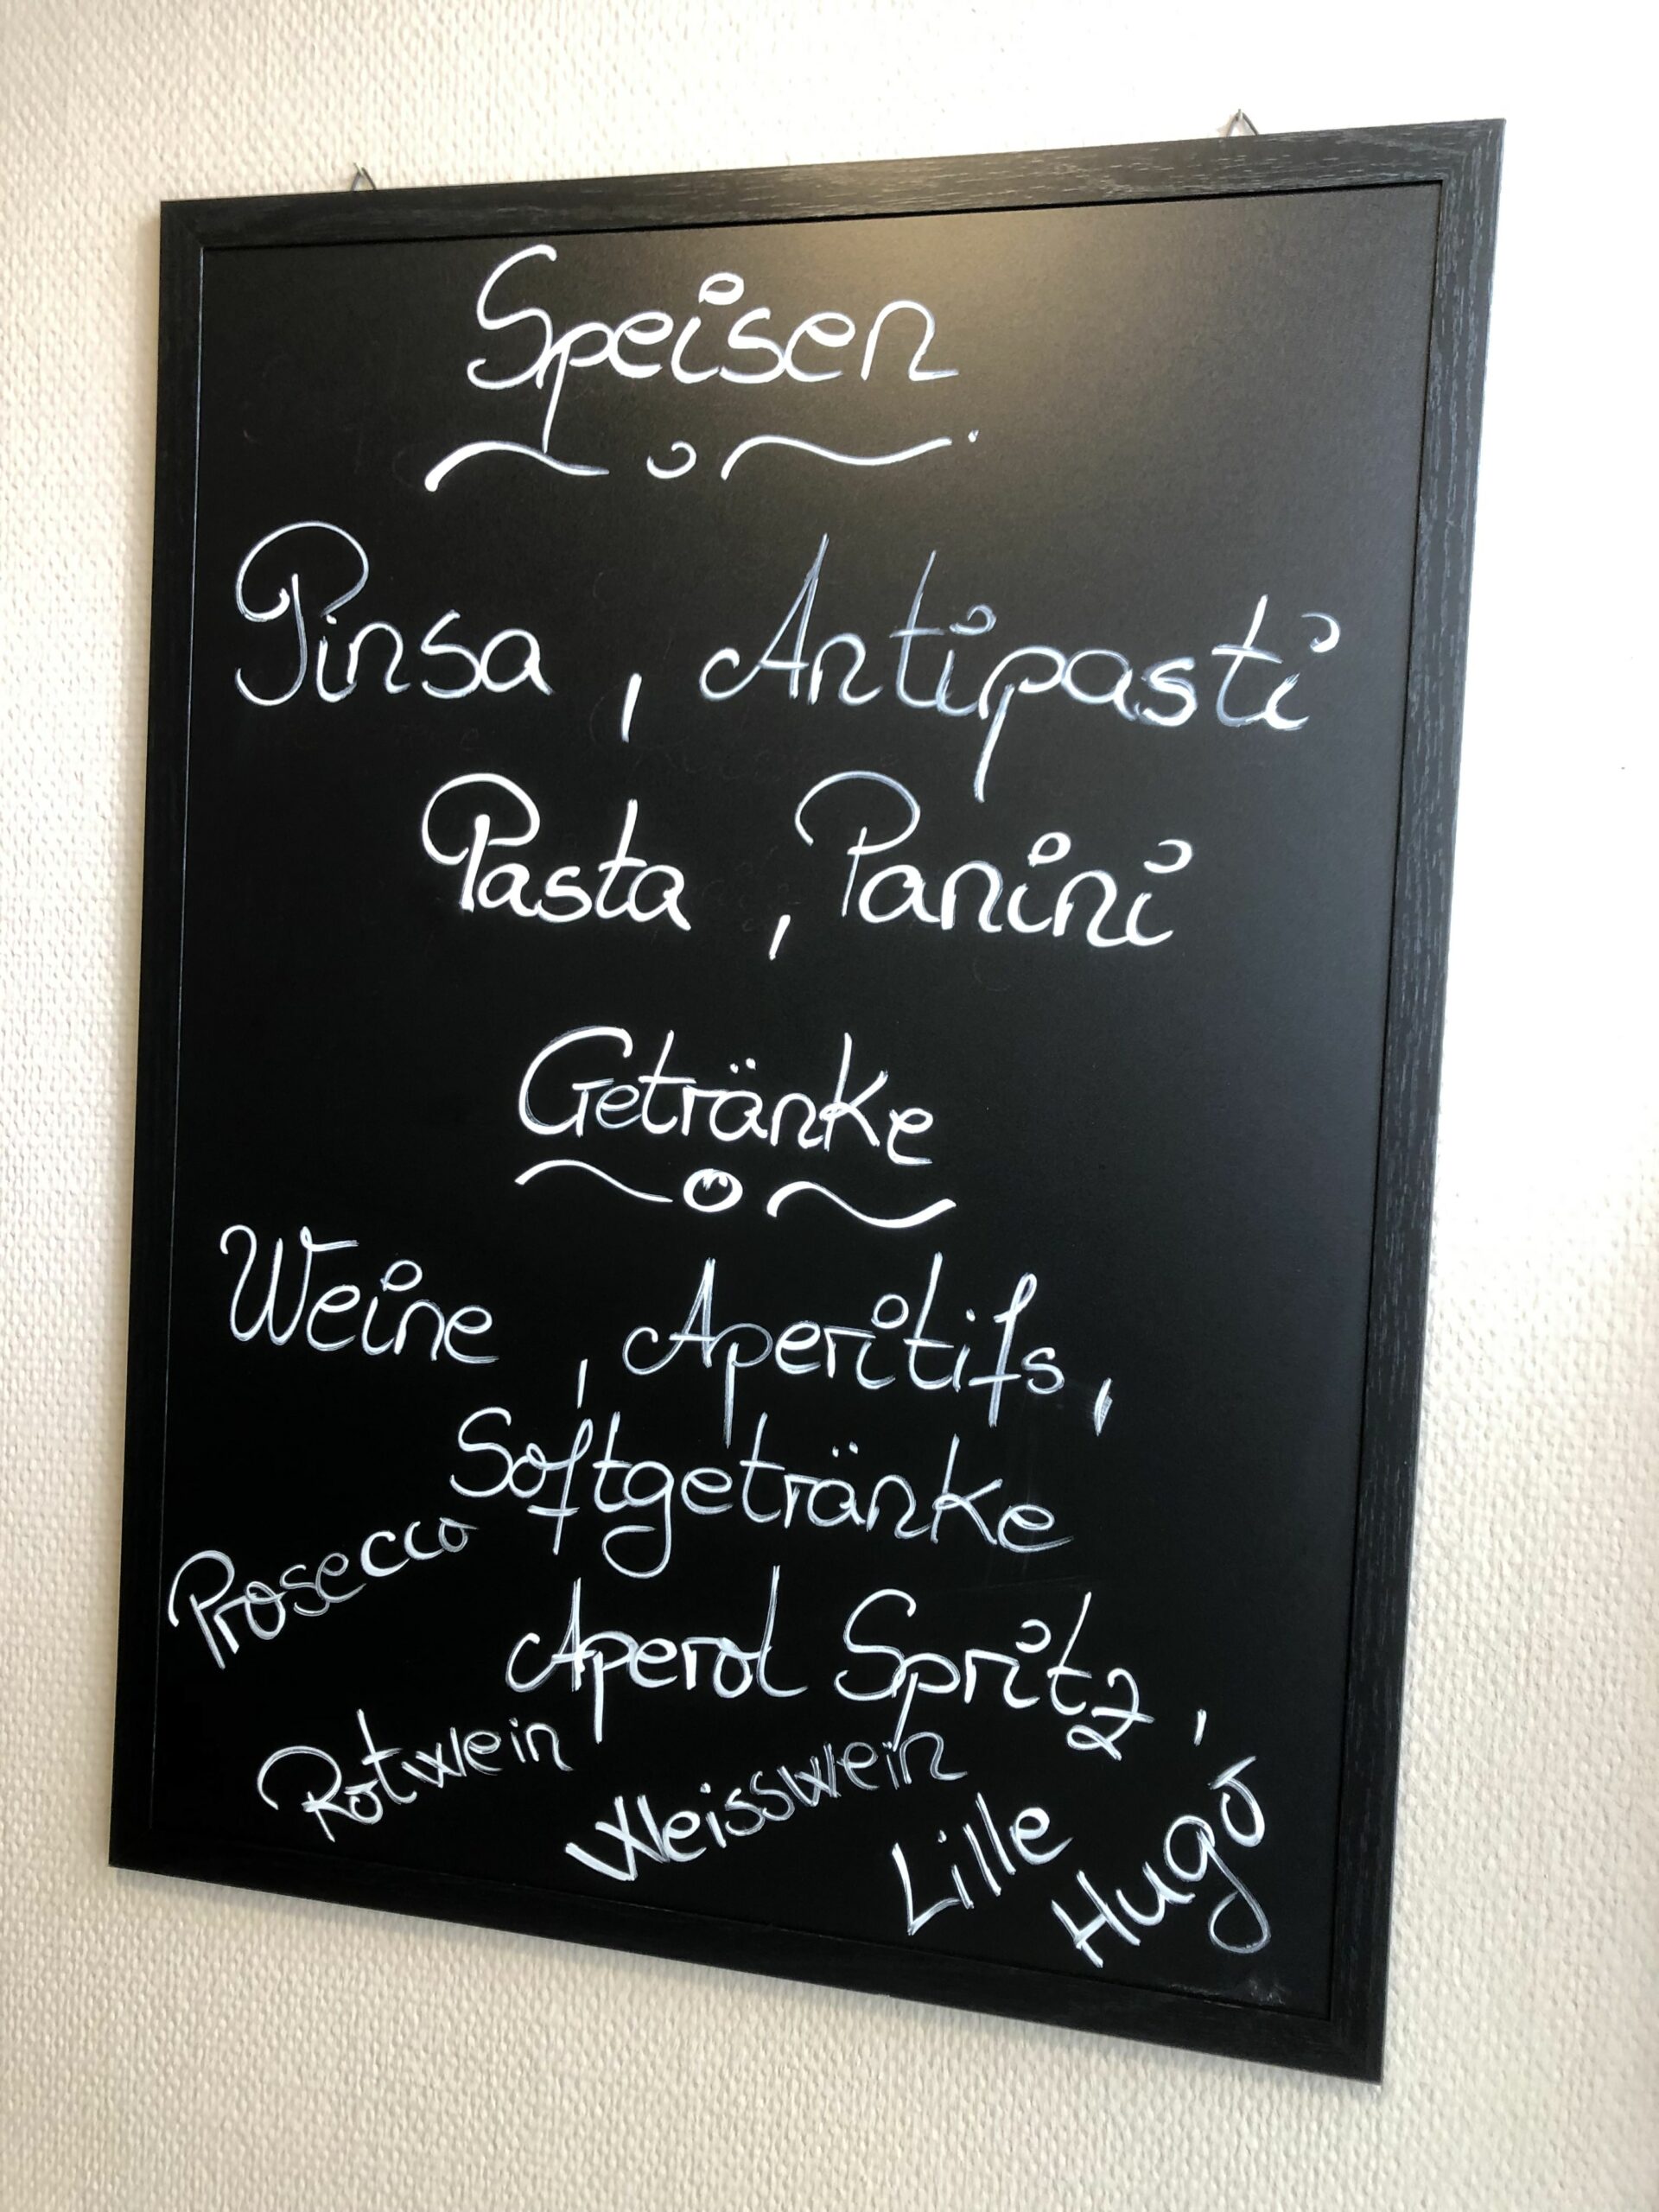 Speisen
Pinsa, Antipasti
Pasta, Panini
Getränke
Weine, Aperitifs,
Softgetränke
Prosecco
Aperol Spritz,
Rotwein
Weisswein
Lille
Hugo